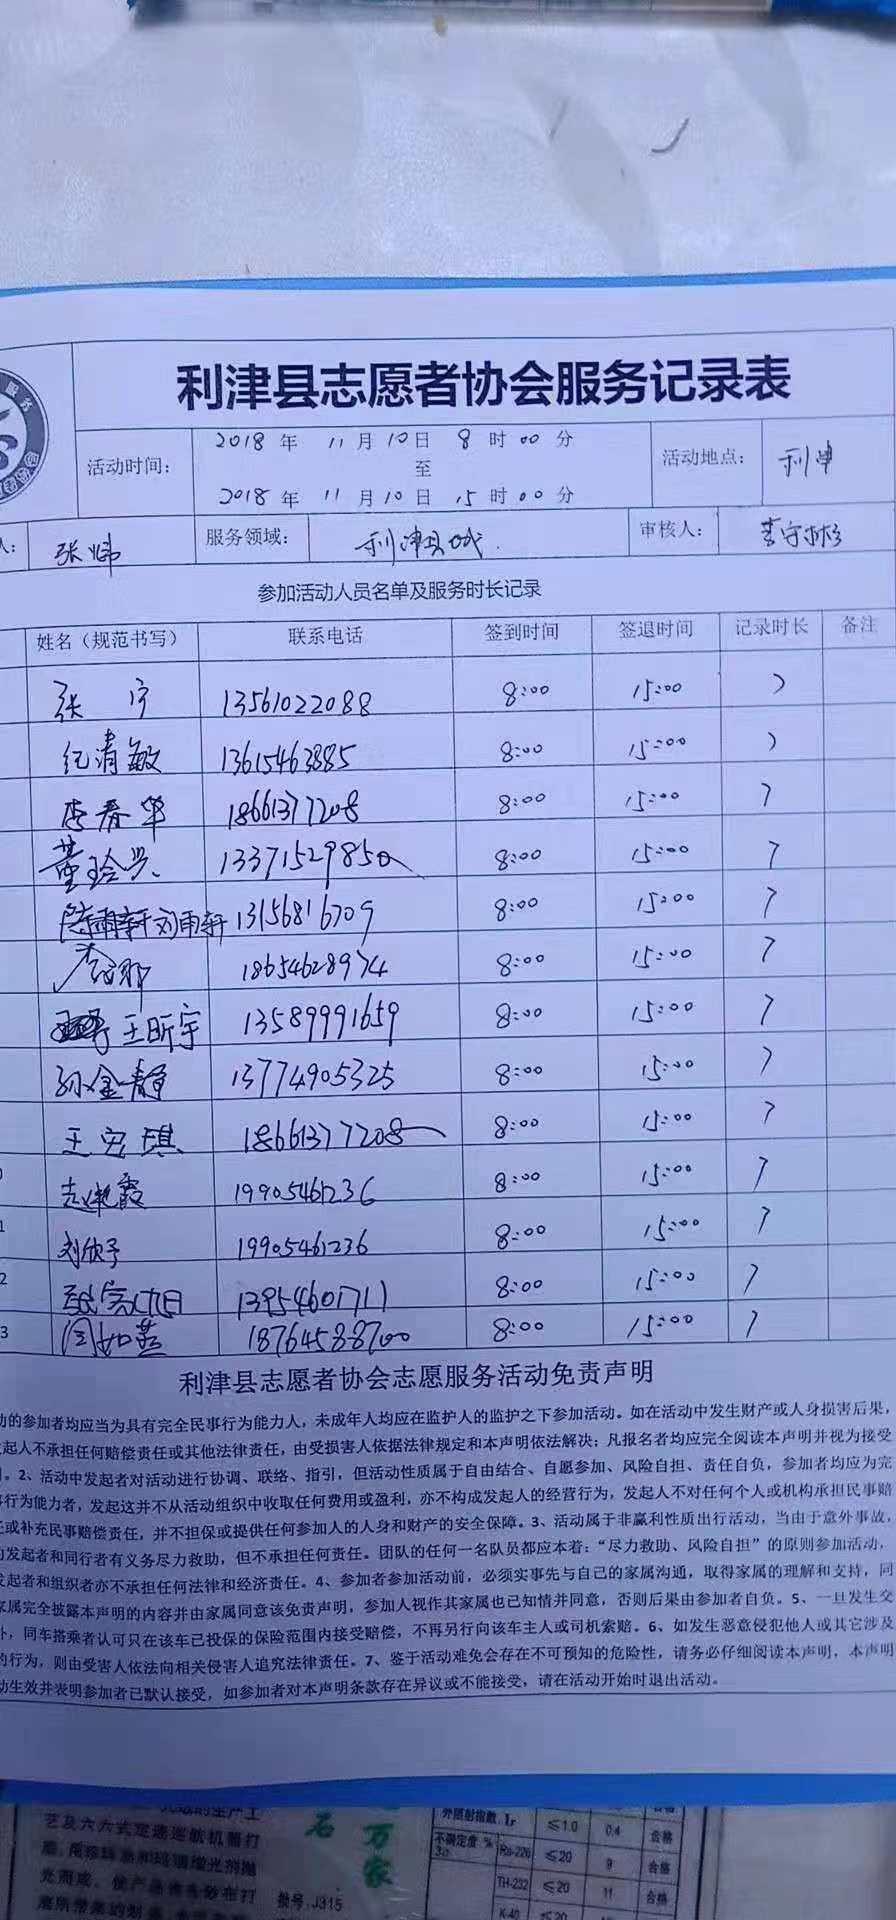 利津县志愿者协会服务记录表
活动时间：
2018 年 11 月 10 日 8 时 00 分
至
2018 年 11 月 10 日 15 时 00 分
活动地点：
利津
人：
张炜
服务领域：
利津县城
审核人：
李守彬
参加活动人员名单及服务时长记录
姓名（规范书写） 联系电话 签到时间 签退时间 记录时长 备注
张宁 13561022088 8:00 15:00 7
纪清敏 13615463885 8:00 15:00 7
李春华 18661377208 8:00 15:00 7
董玲兴 13371529850 8:00 15:00 7
刘雨轩 13156816709 8:00 15:00 7
18654628974 8:00 15:00 7
王昕宇 13589991659 8:00 15:00 7
孙金静 13774905325 8:00 15:00 7
王宏琪 18661377208 8:00 15:00 7
0 赵艳霞 19905461236 8:00 15:00 7
1 刘欣予 19905461236 8:00 15:00 7
2 13954601711 8:00 15:00 7
3 周如燕 18764588700 8:00 15:00 7
利津县志愿者协会志愿服务活动免责声明
动的参加者均应当为具有完全民事行为能力人，未成年人均应在监护人的监护之下参加活动。如在活动中发生财产或人身损害后果，
起人不承担任何赔偿责任或其他法律责任，由受损害人依据法律规定和本声明依法解决；凡报名者均应完全阅读本声明并视为接受
。2、活动中发起者对活动进行协调、联络、指引，但活动性质属于自由结合、自愿参加、风险自担、责任自负，参加者均应为完
行为能力者，发起这并不从活动组织中收取任何费用或盈利，亦不构成发起人的经营行为，发起人不对任何个人或机构承担民事赔
任或补充民事赔偿责任，并不担保或提供任何参加人的人身和财产的安全保障。3、活动属于非赢利性质出行活动，当由于意外事故，
的发起者和同行者有义务尽力救助，但不承担任何责任。团队的任何一名队员都应本着：“尽力救助、风险自担”的原则参加活动，
发起者和组织者亦不承担任何法律和经济责任。4、参加者参加活动前，必须实事先与自己的家属沟通，取得家属的理解和支持，同
家属完全披露本声明的内容并由家属同意该免责声明，参加人视作其家属也已知情并同意，否则后果由参加者自负。5、一旦发生交
外，同车搭乘者认可只在该车已投保的保险范围内接受赔偿，不再另行向该车主人或司机索赔。6、如发生恶意侵犯他人或其它涉及
的行为，则由受害人依法向相关侵害人追究法律责任。7、鉴于活动难免会存在不可预知的危险性，请务必仔细阅读本声明，本声明
动生效并表明参加者已默认接受，如参加者对本声明条款存在异议或不能接受，请在活动开始时退出活动。
石
万家
批号:J315
外照射指数 Ir ≤1.0 0.4 合格
不确定度 % Ra-226 ≤20 9 合格
TH-232 ≤20 11 合格
K-40 ≤20